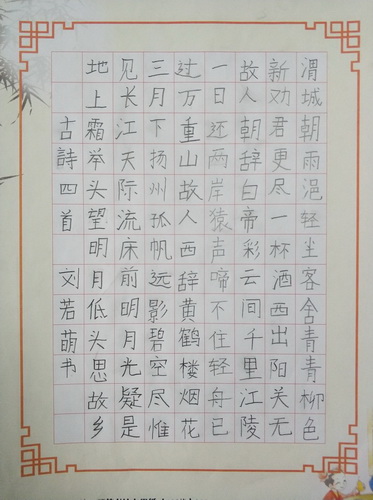 渭城朝雨浥轻尘客舍青青柳色
新劝君更尽一杯酒西出阳关无
故人朝辞白帝彩云间千里江陵
一日还两岸猿声啼不住轻舟已
过万重山故人西辞黄鹤楼烟花
三月下扬州孤帆远影碧空尽惟
见长江天际流床前明月光疑是
地上霜举头望明月低头思故乡
古詩四首 刘若萌书